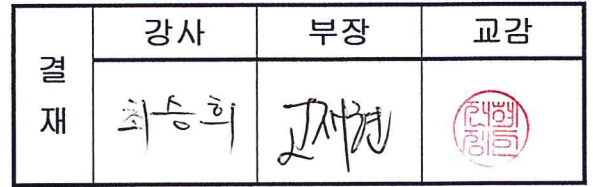 결재
강사 부장 교감
최승희 고재현